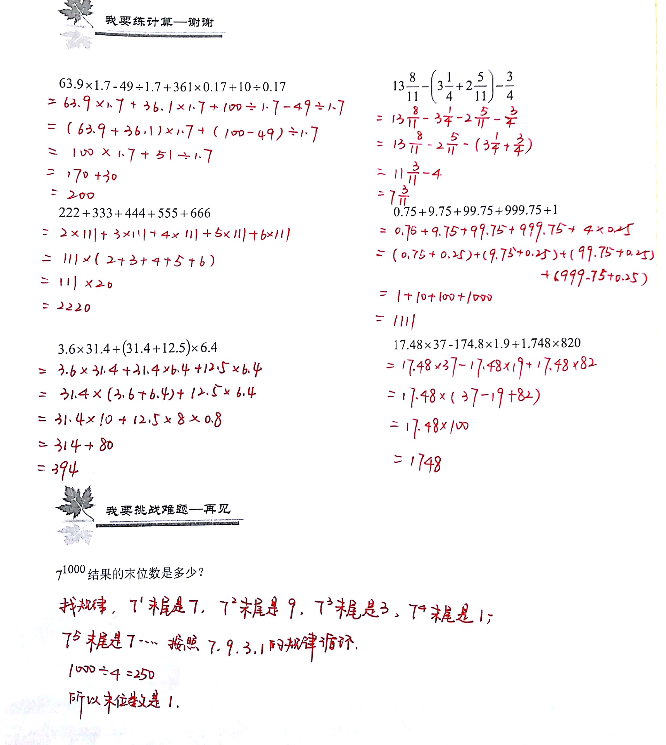 我要练计算—谢谢
63.9×1.7-49÷1.7+361×0.17+10÷0.17
= 63.9×1.7+36.1×1.7+100÷1.7-49÷1.7
= (63.9+36.1)×1.7+(100-49)÷1.7
= 100×1.7+51÷1.7
= 170+30
= 200
13 8/11-(3 1/4+2 5/11)-3/4
= 13 8/11-3 1/4-2 5/11-3/4
= 13 8/11-2 5/11-(3 1/4+3/4)
= 11 3/11-4
= 7 3/11
222+333+444+555+666
= 2×111+3×111+4×111+5×111+6×111
= 111×(2+3+4+5+6)
= 111×20
= 2220
0.75+9.75+99.75+999.75+1
= 0.75+9.75+99.75+999.75+4×0.25
= (0.75+0.25)+(9.75+0.25)+(99.75+0.25)
+(999.75+0.25)
= 1+10+100+1000
= 1111
3.6×31.4+(31.4+12.5)×6.4
= 3.6×31.4+31.4×6.4+12.5×6.4
= 31.4×(3.6+6.4)+12.5×6.4
= 31.4×10+12.5×8×0.8
= 314+80
= 394
17.48×37-174.8×1.9+1.748×820
= 17.48×37-17.48×19+17.48×82
= 17.48×(37-19+82)
= 17.48×100
= 1748
我要挑战难题—再见
7^1000 结果的末位数是多少?
找规律，7^1末尾是7，7^2末尾是9，7^3末尾是3、7^4末尾是1;
7^5末尾是7…… 按照 7.9.3.1的规律循环.
1000÷4=250
所以末位数是1.